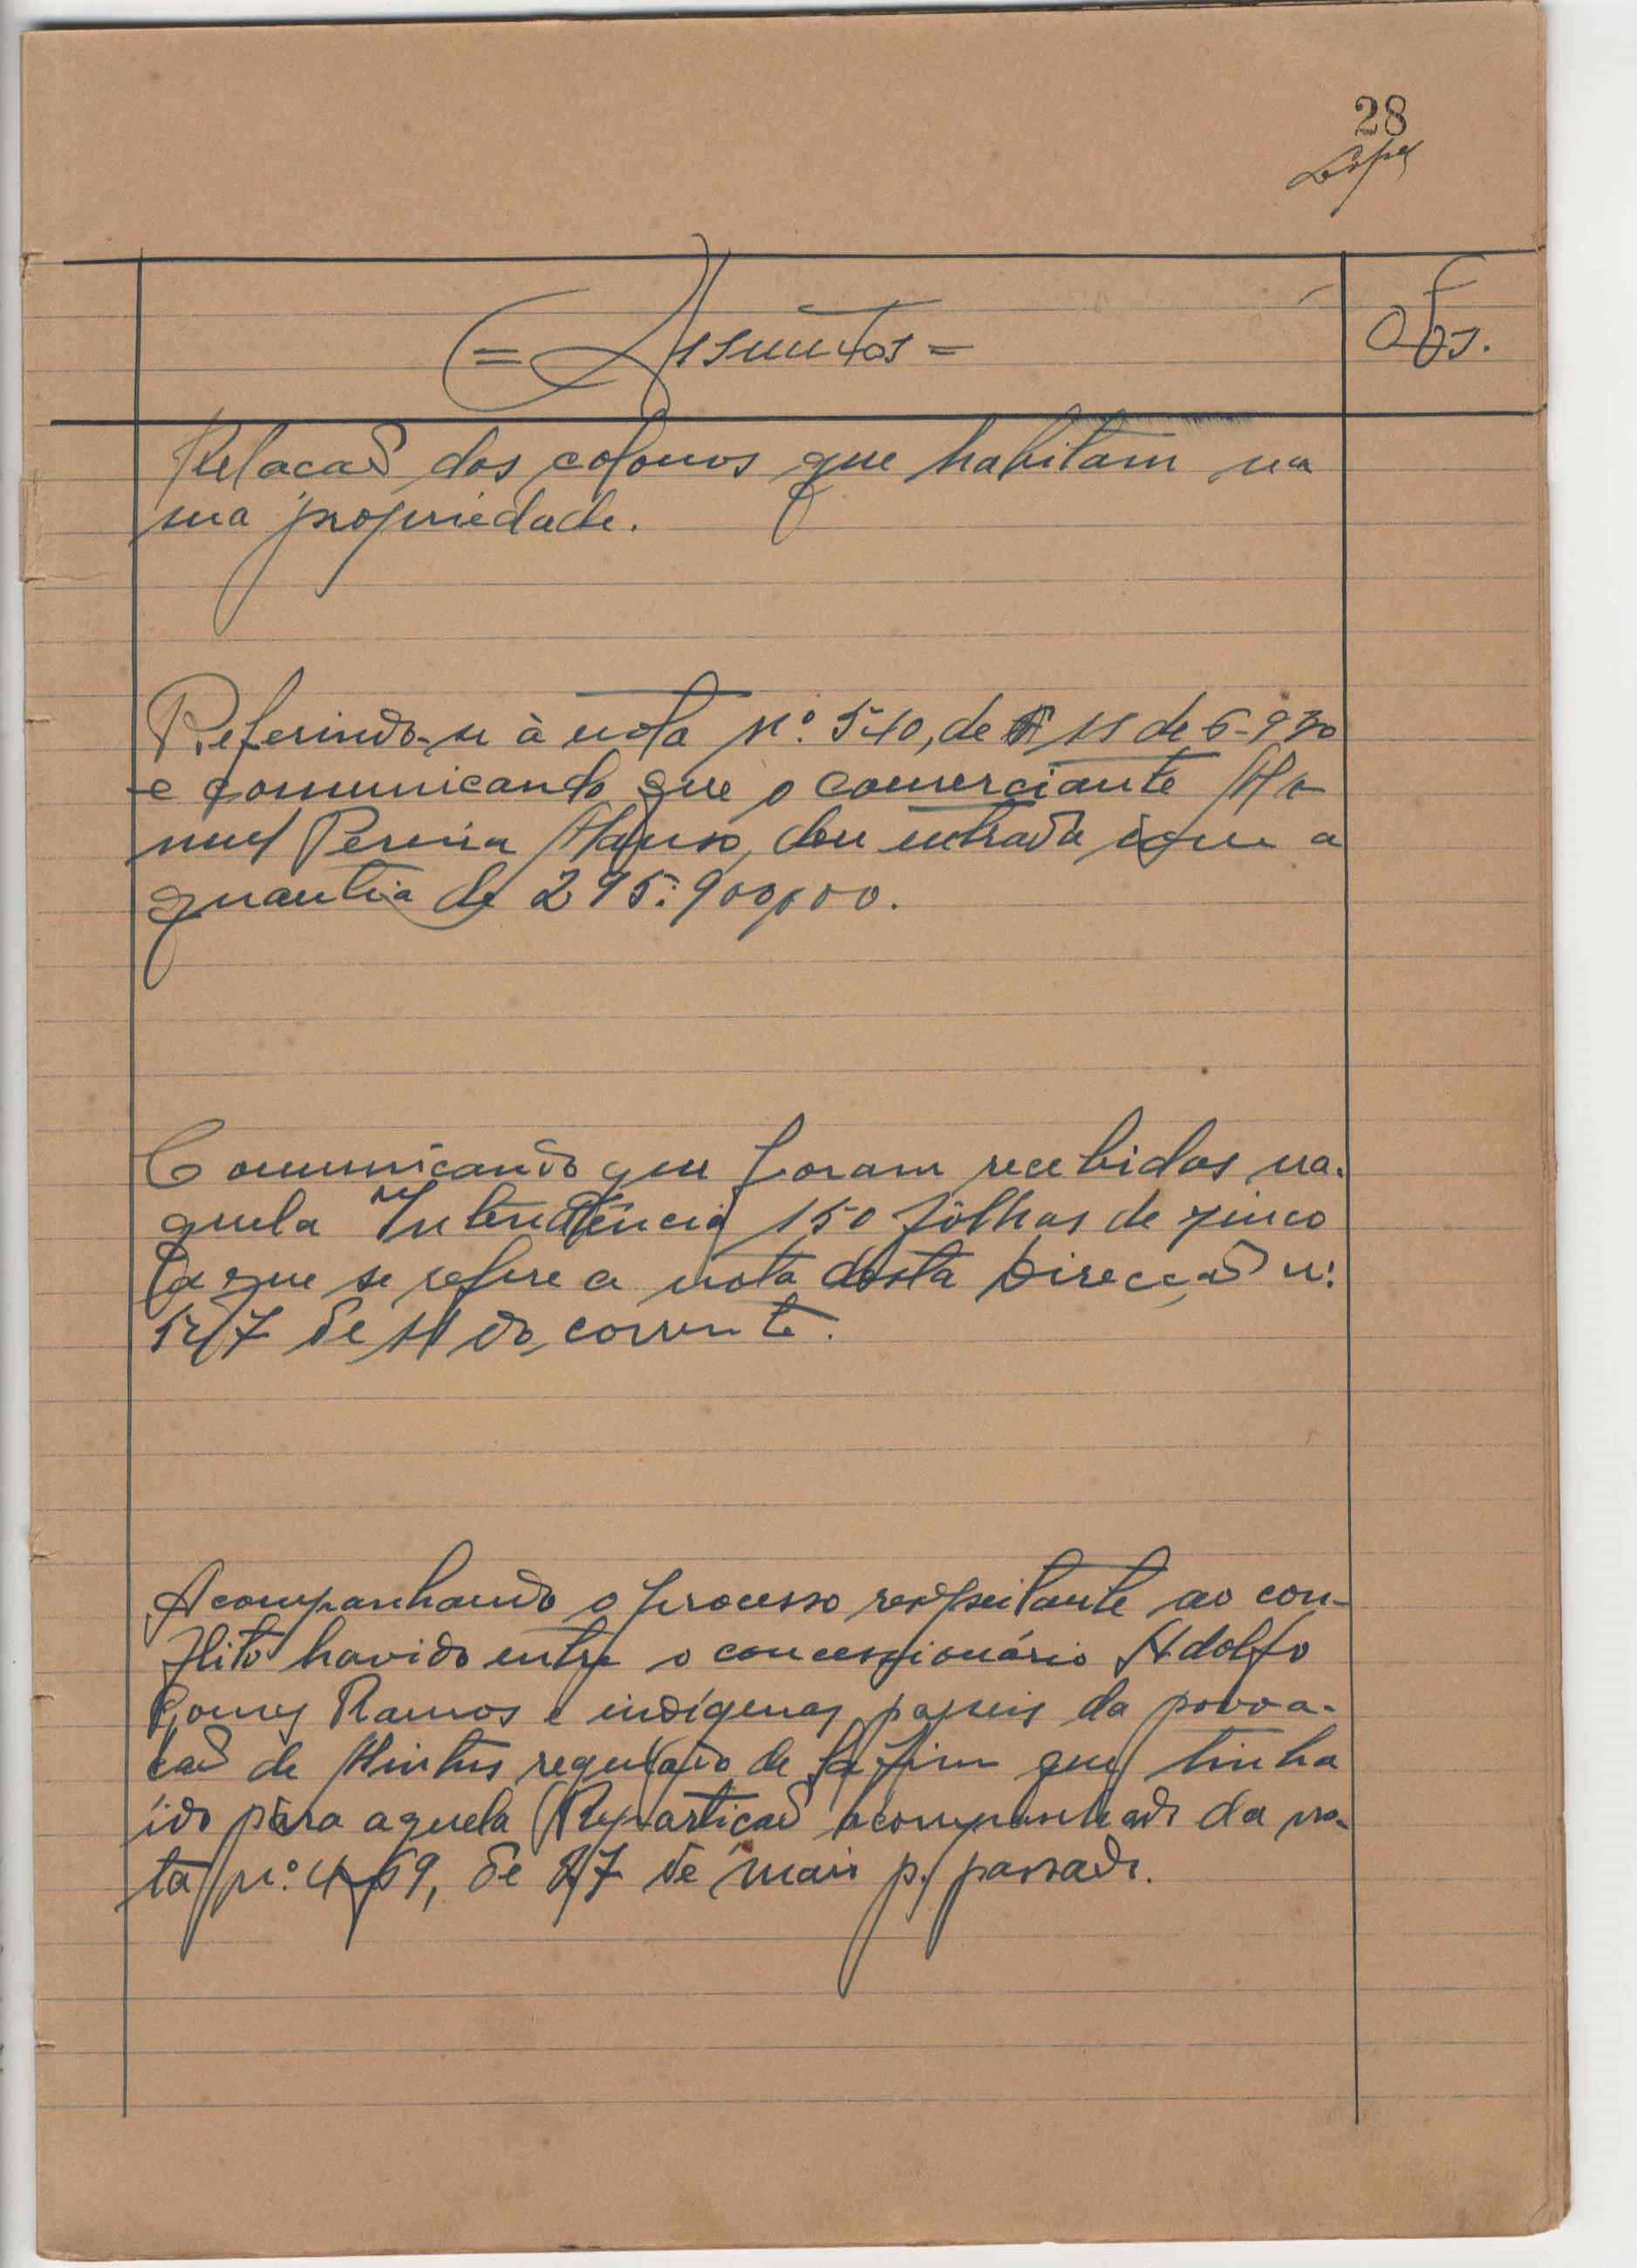 28
Lopes
= Assuntos =
Obs.
Relacaõ dos colonos que habitam na
sua propriedade.
Referindo-se à nota Nº. 540, de 11 de 6-930
e comunicando que o comerciante Ma
nuel Pereira deu entrada com a
quantia de 295:900,00.
Comunicando que foram recebidas na-
quela Intendência 150 fôlhas de zinco
a que se refere a nota desta Direcção nº
527 de 11 do corrente.
Acompanhando o processo respeitante ao con-
flito havido entre o concessionário Adolfo
Gomes Ramos e indígenas papeis da povoa-
caõ de regulado de Safim que tinha
ido para aquela Reparticaõ acompanhado da no-
ta nº. 469, de 27 de maio p. passado.